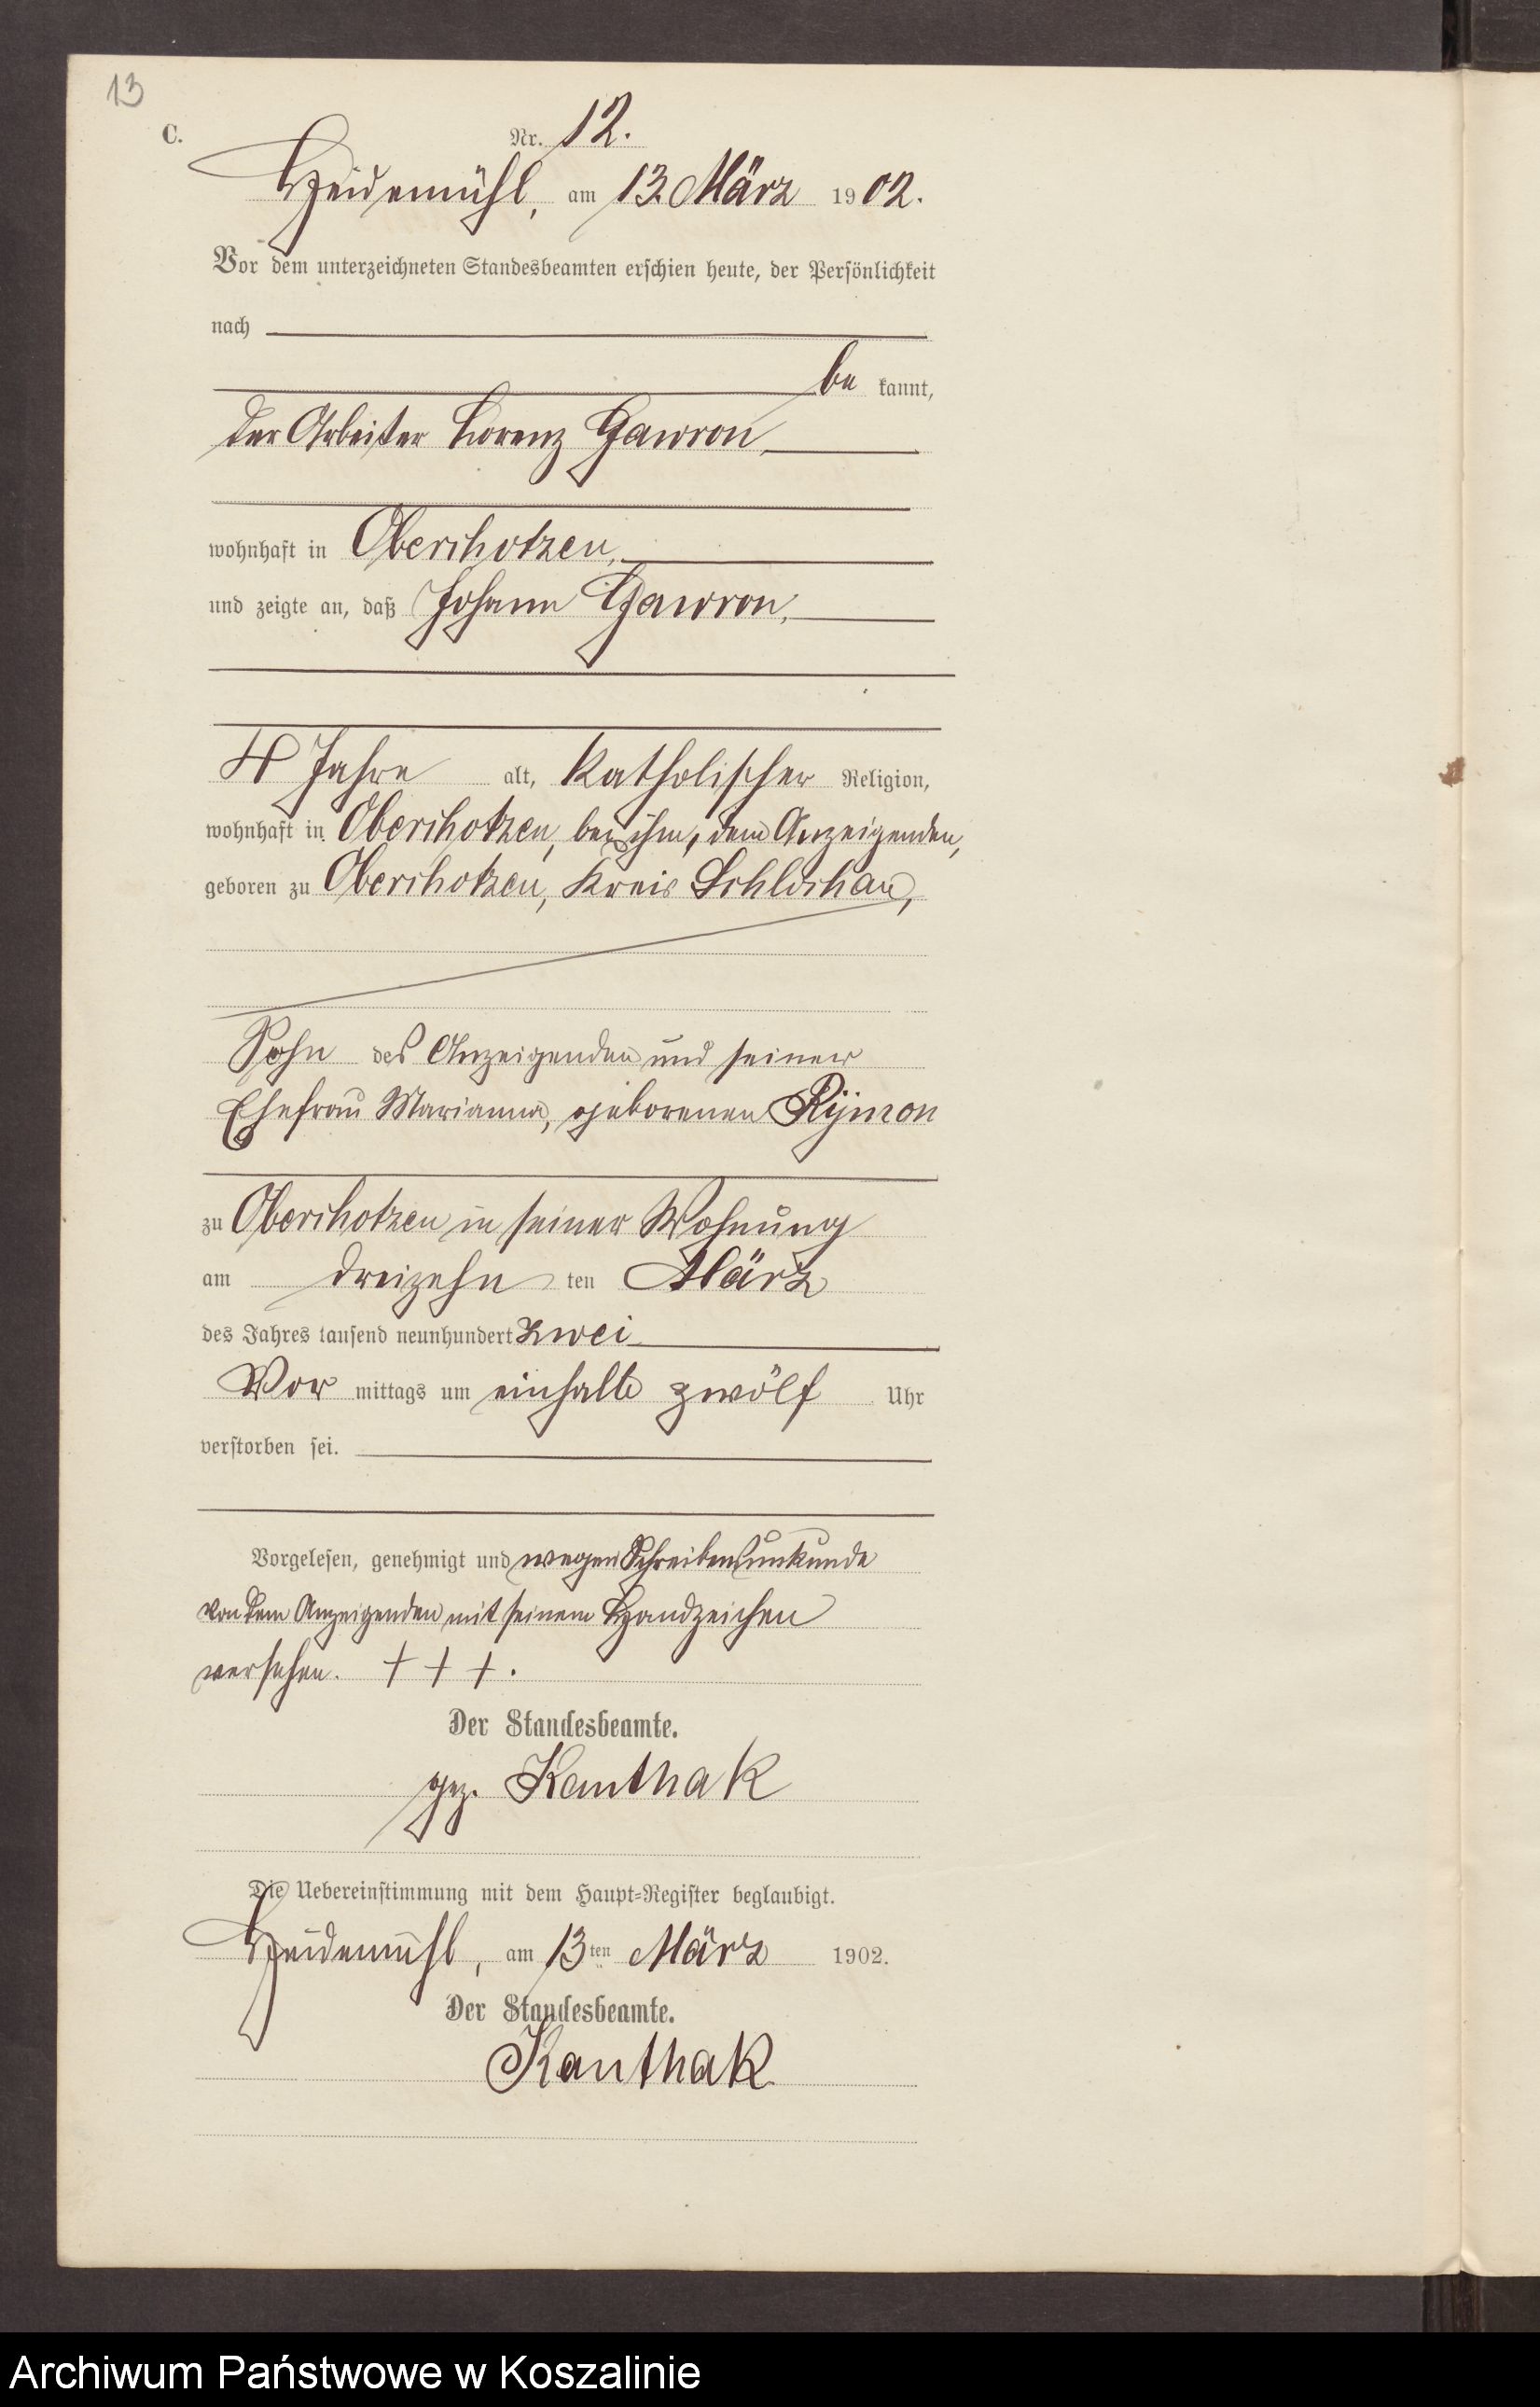 13
C.
Nr. 12.
Heidemühl, am 13. März 1902.
Vor dem unterzeichneten Standesbeamten erschien heute, der Persönlichkeit
nach
be kannt,
der Arbeiter Lorenz Gawron,
wohnhaft in Oberchotzen,
und zeigte an, daß Johann Gawron,
4 Jahre alt, katholischer Religion,
wohnhaft in Oberchotzen, bei ihm, dem Anzeigenden,
geboren zu Oberchotzen, Kreis Schlochau,
Sohn des Anzeigenden und seiner
Ehefrau Marianna, geborenen Rymon
zu Oberchotzen in seiner Wohnung
am dreizehn ten März
des Jahres tausend neunhundert zwei
Vor mittags um einhalb zwölf Uhr
verstorben sei.
Vorgelesen, genehmigt und wegen Schreibensunkunde
von dem Anzeigenden mit seinem Handzeichen
versehen. + + +.
Der Standesbeamte.
gez. Kanthak
Die Uebereinstimmung mit dem Haupt-Register beglaubigt.
Heidemühl, am 13ten März 1902.
Der Standesbeamte.
Kanthak
Archiwum Państwowe w Koszalinie